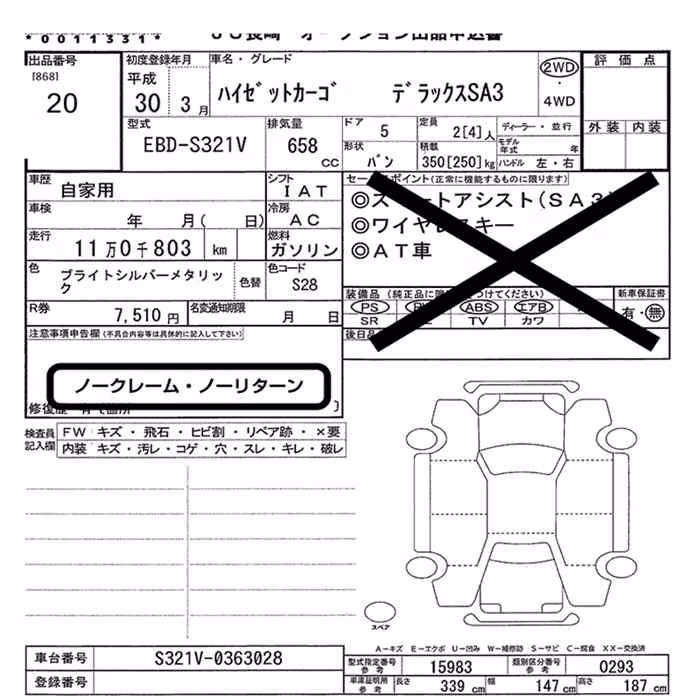 *0011331*
JU長崎 オークション出品申込書
出品番号
[868]
20
初度登録年月
平成
30 3月
車名・グレード
ハイゼットカーゴ デラックスSA3
2WD
・
4WD
評価点
外装 内装
型式
EBD-S321V
排気量
658
CC
ドア 5
定員 2[4]人
ディーラー・並行
モデル年式 年
形状 バン
積載 350[250]kg
ハンドル 左・右
車歴 自家用
シフト IAT
車検 年 月( 日)
冷房 AC
走行 11万0千803 km
燃料 ガソリン
色 ブライトシルバーメタリック
色替
色コード S28
R券 7,510円
名変通知期限 月 日
セールスポイント(正常に機能するものに限ります)
◎スマートアシスト(SA3)
◎ワイヤレスキー
◎AT車
装備品 (純正品に限 をつけてください)
新車保証書
PS ABS エアB
SR TV カワ
有・無
後日品
注意事項申告欄(不具合内容等は具体的に記入して下さい)
ノークレーム・ノーリターン
修復歴 有 箇所 〕
検査員記入欄
FW キズ・飛石・ヒビ割・リペア跡・×要
内装 キズ・汚レ・コゲ・穴・スレ・キレ・破レ
スペア
A-キズ E-エクボ U-凹み W-補修跡 S-サビ C-腐食 XX-交換済
車台番号 S321V-0363028
登録番号
型式指定番号 参考 15983
類別区分番号 参考 0293
車庫証明用 参考 長さ 339cm 幅 147cm 高さ 187cm